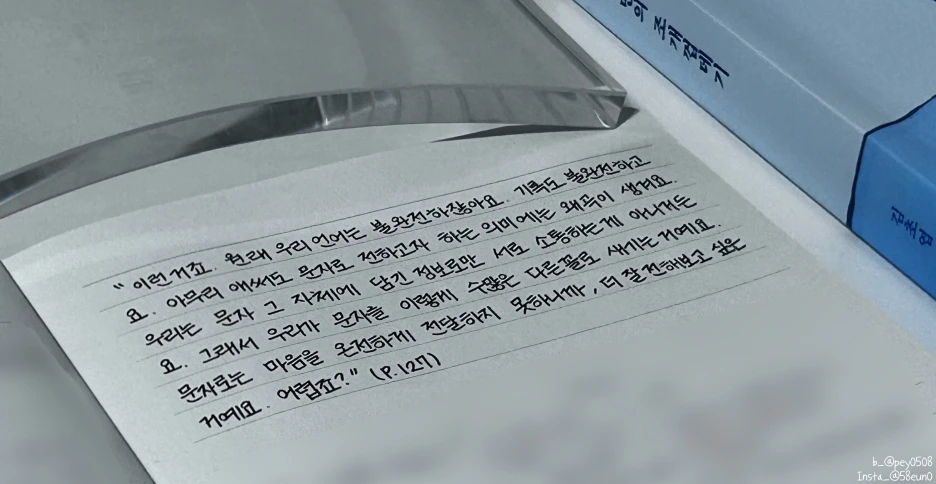 의 조개집데기
김초엽
" 이런거죠. 원래 우리 언어는 불완전하잖아요. 기록도 불완전하고
요. 아무리 애써도 문자로 전하고자 하는 의미에는 왜곡이 생겨요.
우리는 문자 그 자체에 담긴 정보로만 서로 소통하는게 아니거든
요. 그래서 우리가 문자를 이렇게 수많은 다른꼴로 새기는거예요.
문자로는 마음을 온전하게 전달하지 못하니까, 더 잘 전해보고 싶은
거예요. 어렵죠?" (P.127)
b_@pey0508
Insta_@58eun0